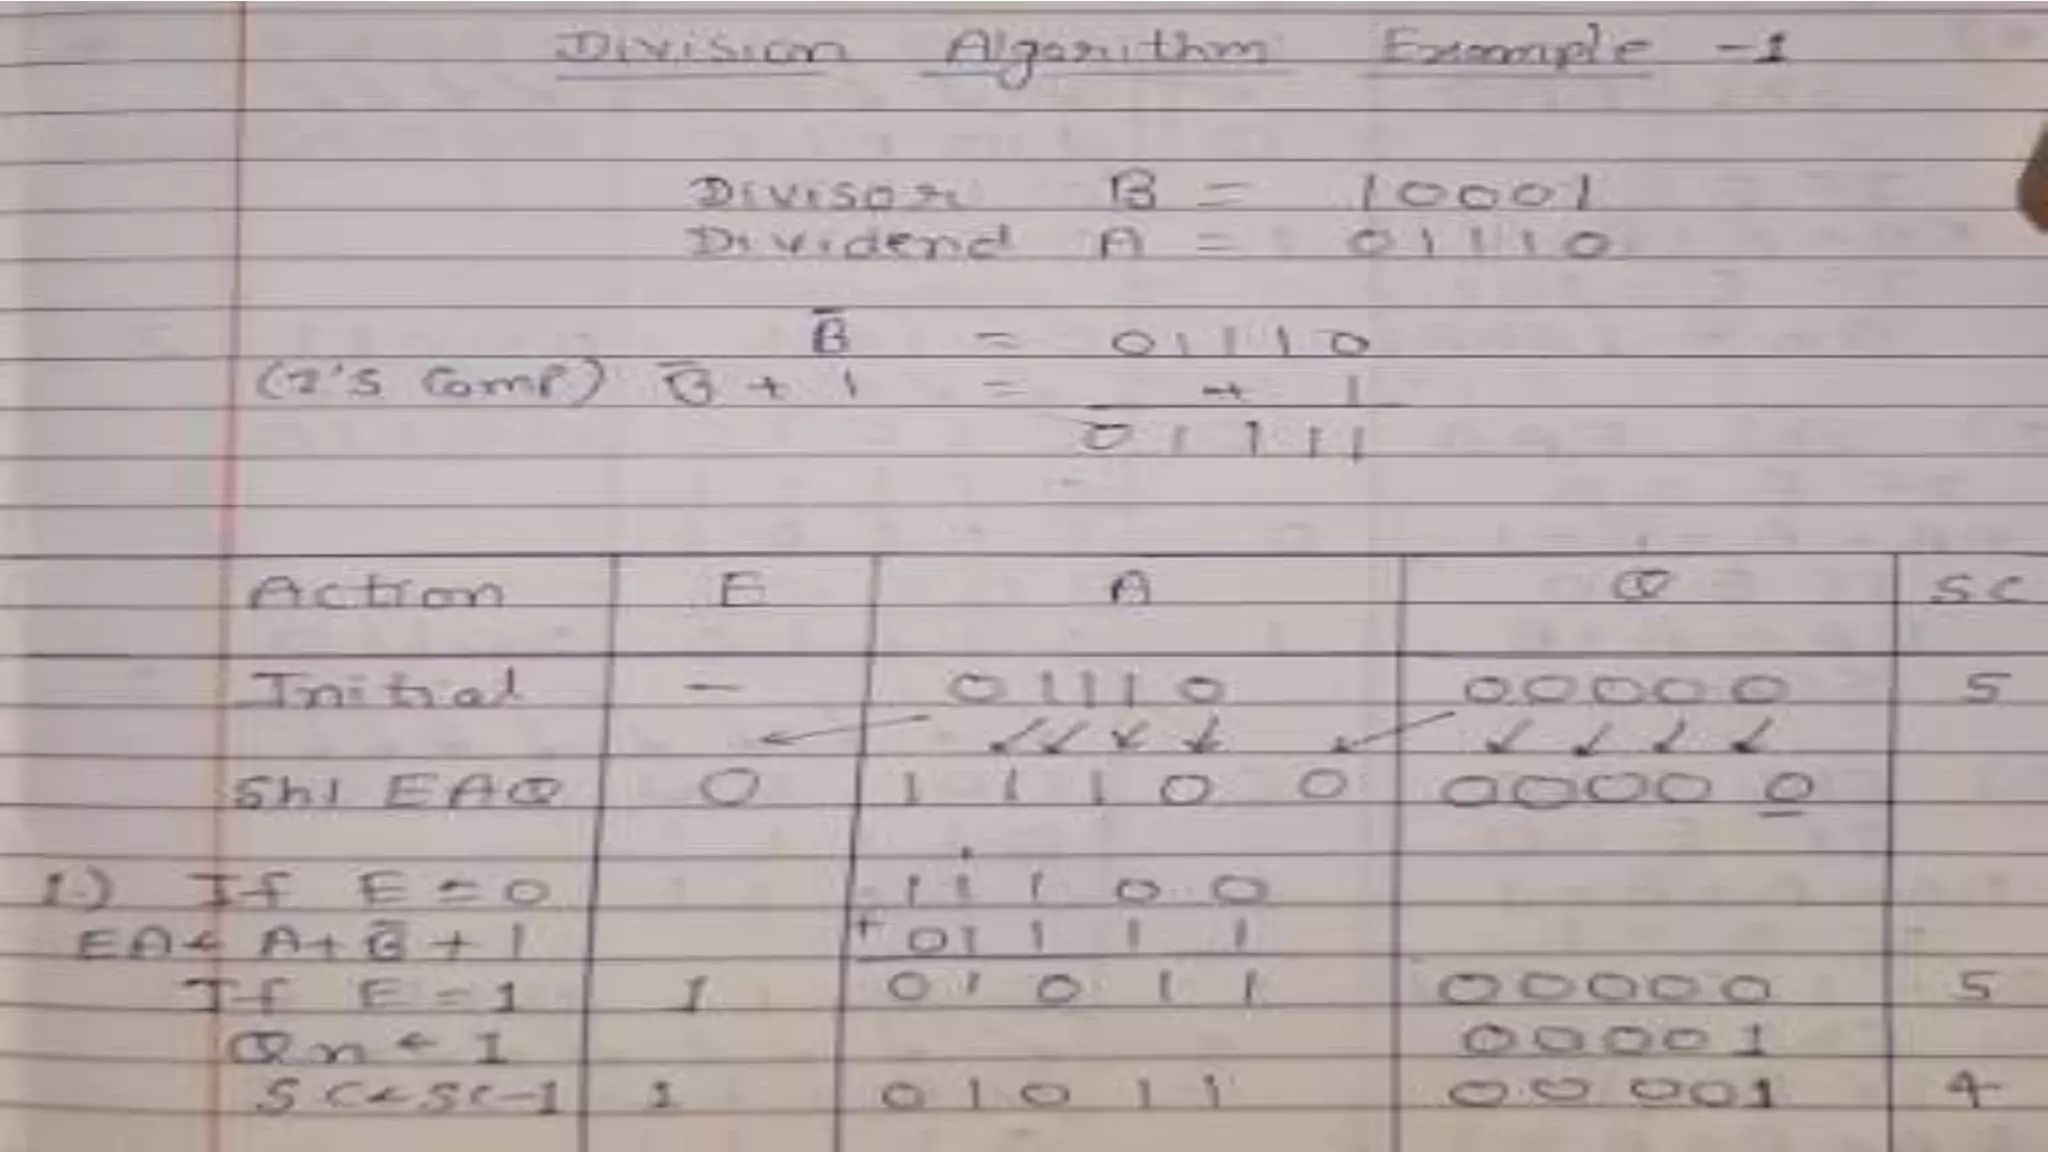 Division Algorithm Example -1
Divisor B = 10001
Dividend A = 01110
B̅ = 01110
(2's comp) B̅ + 1 = + 1
01111
Action E A Q SC
Initial - 01110 00000 5
Shl EAQ 0 11100 00000
1.) If E = 0 11100
EA← A+B̅+1 + 01111
If E = 1 1 01011 00000 5
Qn ← 1 00001
SC←SC-1 1 01011 00001 4